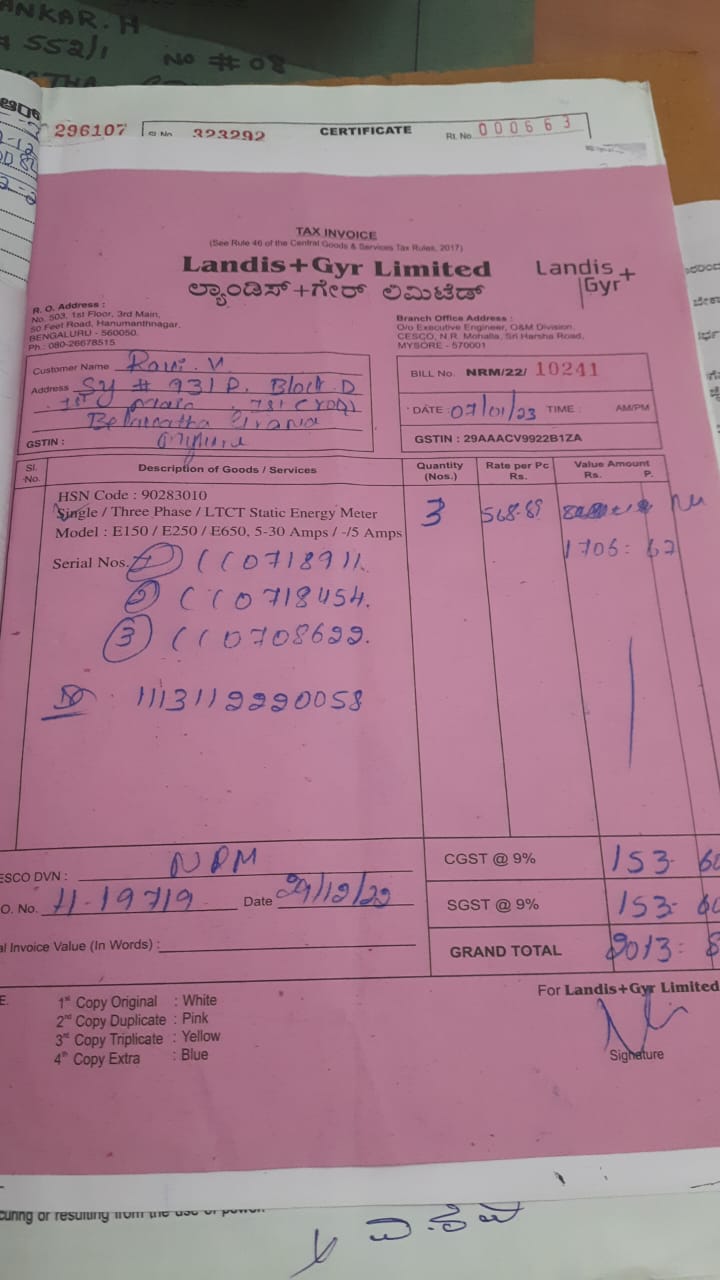 ANKAR. H
# 552/1
No # 08
296107 Sl No. 323292 CERTIFICATE Rt. No. 000663
TAX INVOICE
(See Rule 46 of the Central Goods & Services Tax Rules, 2017)
Landis+Gyr Limited
Landis+
Gyr
ಲ್ಯಾಂಡಿಸ್+ಗೇರ್ ಲಿಮಿಟೆಡ್
R. O. Address :
No. 503, 1st Floor, 3rd Main,
50 Feet Road, Hanumanthnagar,
BENGALURU - 560050.
Ph.: 080-26678515
Branch Office Address :
O/o Executive Engineer, O&M Division,
CESCO, N.R. Mohalla, Sri Harsha Road,
MYSORE - 570001
Customer Name Ravi. V
Address Sy # 931 P. Block D
1st
GSTIN :
BILL No. NRM/22/ 10241
DATE : 07/01/23 TIME : AM/PM
GSTIN : 29AAACV9922B1ZA
Sl. No. Description of Goods / Services Quantity (Nos.) Rate per Pc Rs. Value Amount Rs. P.
HSN Code : 90283010
Single / Three Phase / LTCT Static Energy Meter 3 568-89
Model : E150 / E250 / E650, 5-30 Amps / -/5 Amps
1706: 67
Serial Nos. 1 CC0718911.
2 CC0718454.
3 CC0708699.
1113119990058
ESCO DVN :
O. No. 11-19719 Date 29/12/22
al Invoice Value (In Words) :
CGST @ 9% 153- 60
SGST @ 9% 153- 60
GRAND TOTAL 2013: 8
E.
1st Copy Original : White
2nd Copy Duplicate : Pink
3rd Copy Triplicate : Yellow
4th Copy Extra : Blue
For Landis+Gyr Limited
Signature
curing or resulting from the use of power.